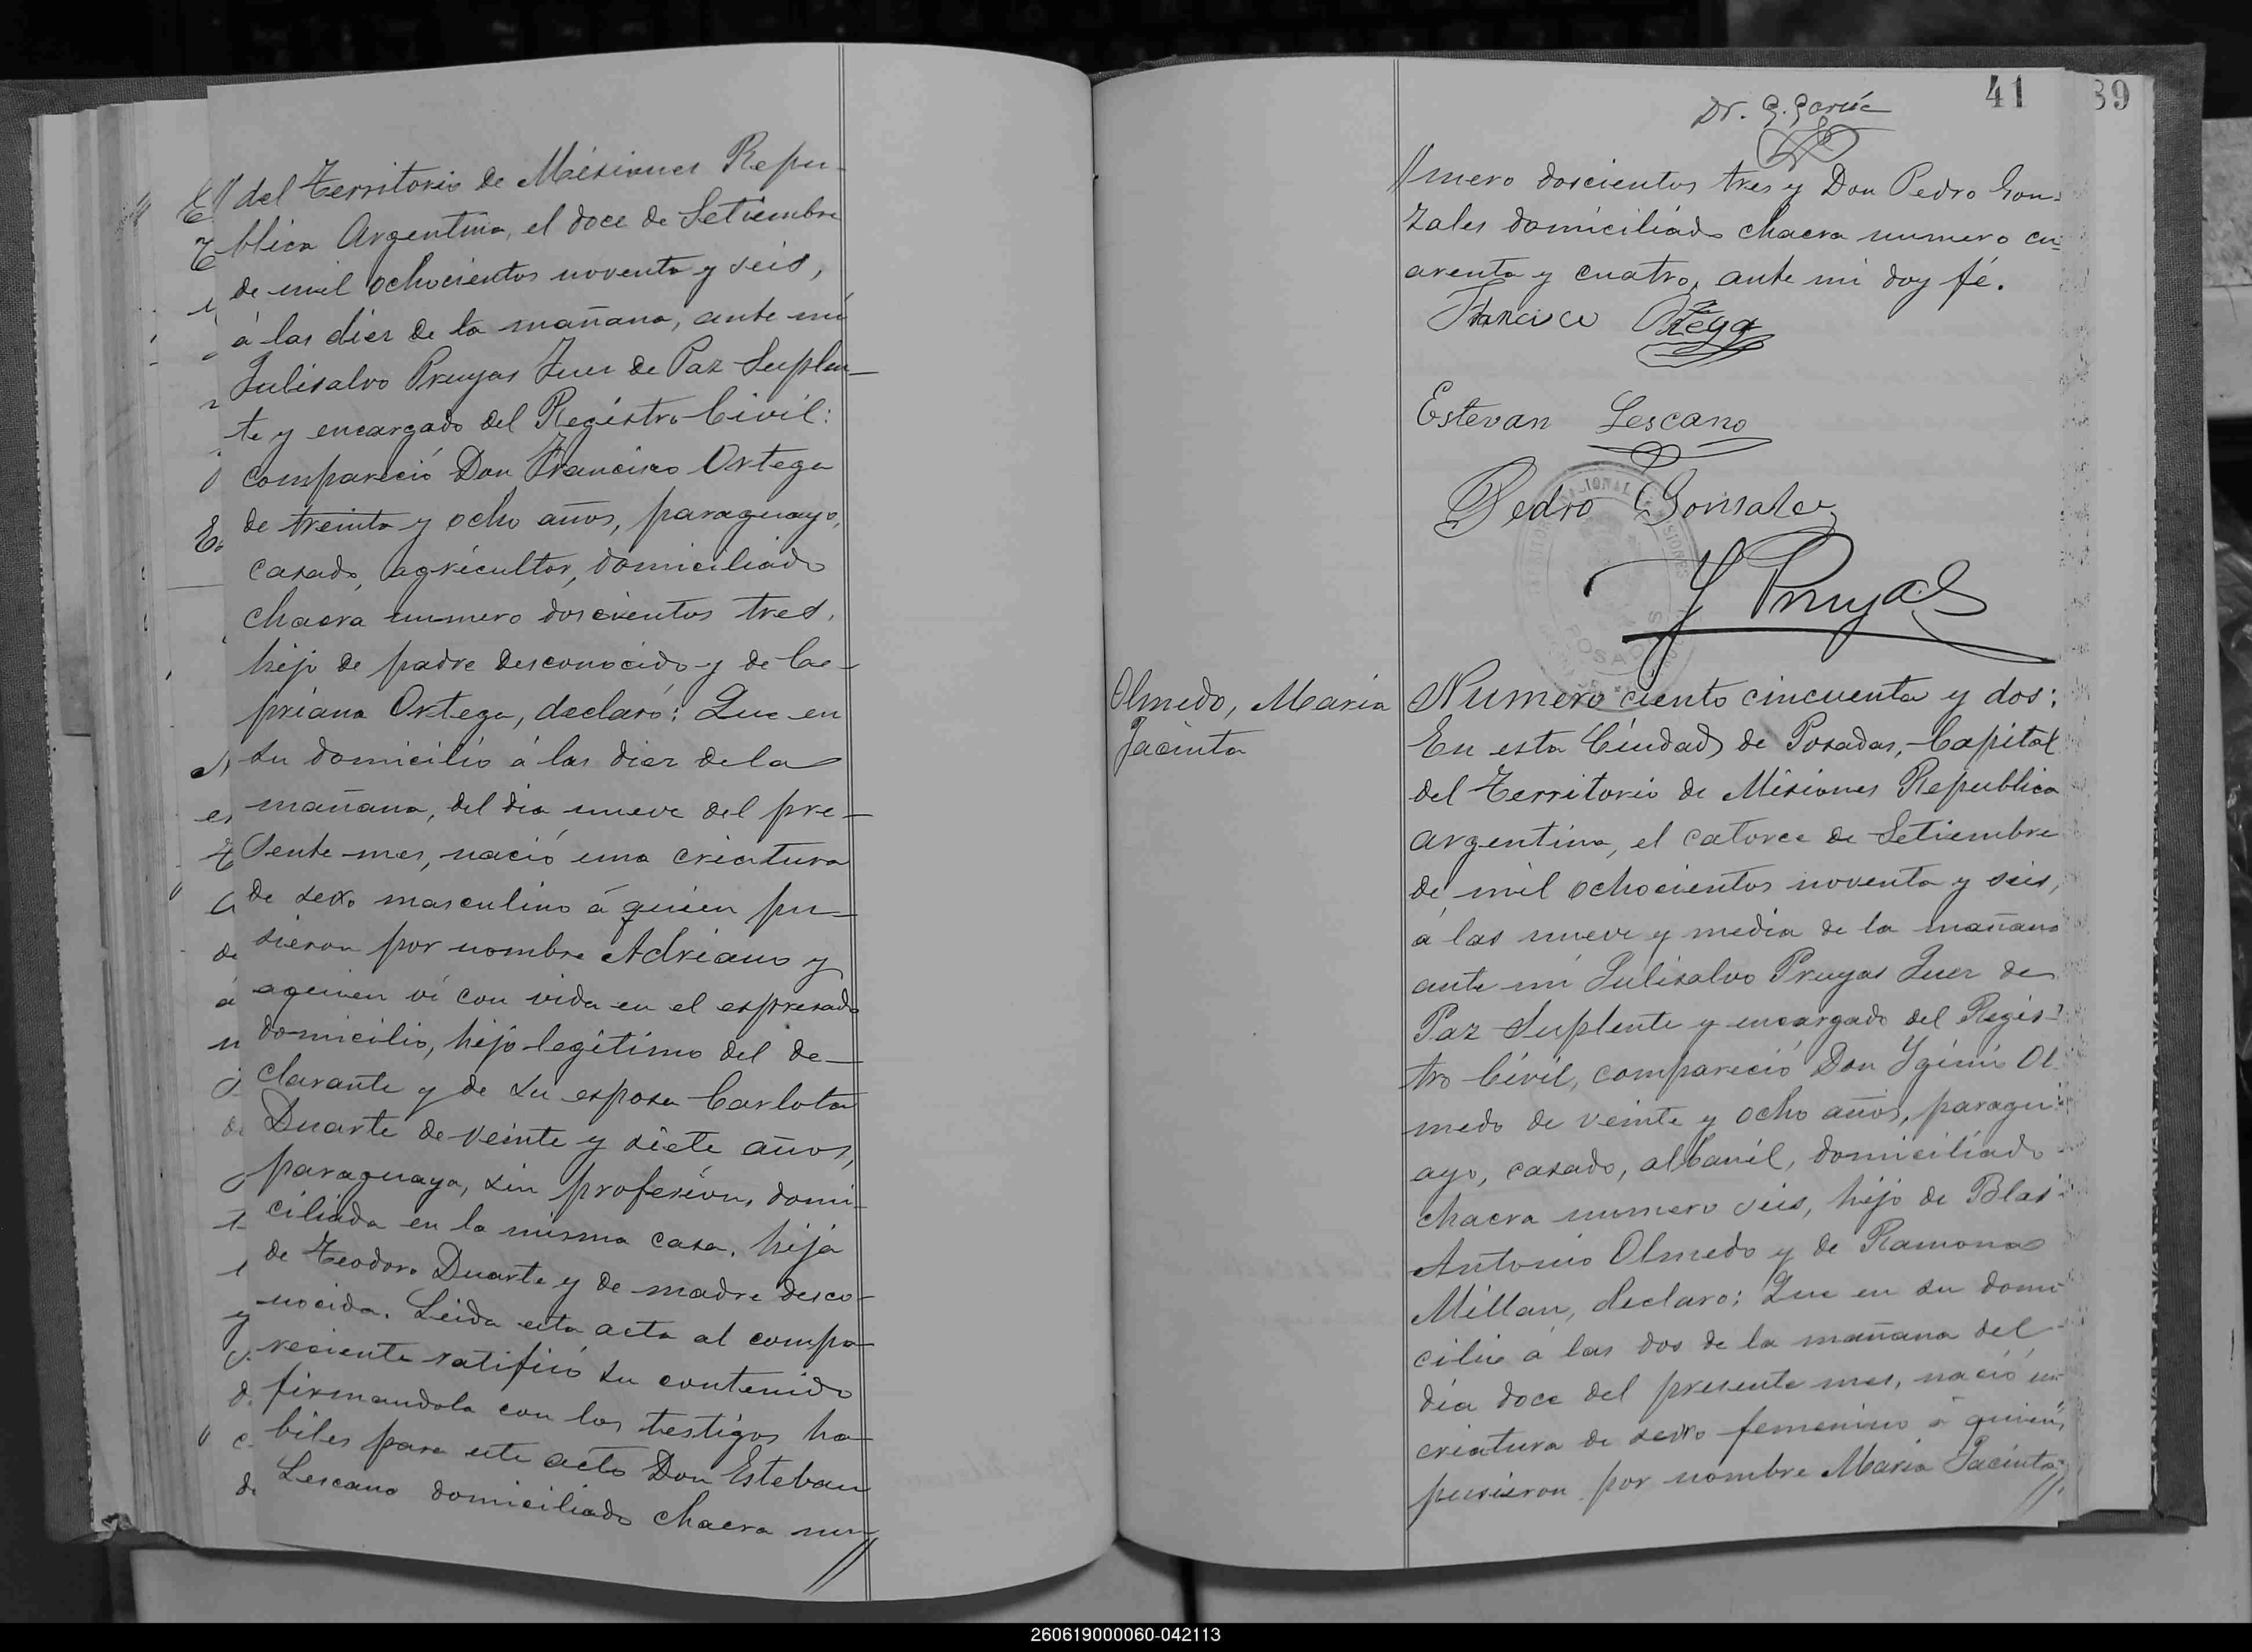 // del Territorio de Misiones Repu-
blica Argentina, el doce de Setiembre
de mil ochocientos noventa y seis,
á las diez de la mañana, ante mi
Julisalvo Pruyas Juez de Paz Suplen-
te y encargado del Registro Civil:
compareció Don Francisco Ortega
de treinta y ocho años, paraguayo,
casado, agricultor, domiciliado
chacra numero doscientos tres,
hijo de padre desconocido y de Ce-
priana Ortega, declaró: Que en
su domicilio á las diez de la
mañana, del dia nueve del pre-
sente mes, nació una criatura
de sexo masculino á quien pu-
sieron por nombre Adriano y
a quien vi con vida en el espresado
domicilio, hijo legitimo del de-
clarante y de su esposa Carlota
Duarte de veinte y siete años,
paraguaya, sin profesion, domi-
ciliada en la misma casa, hija
de Teodoro Duarte y de madre desco-
nocida. Leida esta acta al compa-
reciente ratificó su contenido
firmandola con los testigos ha-
biles para este acto Don Esteban
Lescano domiciliado chacra nu-
//
41
39
Dr. G. García
//mero doscientos tres y Don Pedro Gon-
zales domiciliado chacra numero cu-
arenta y cuatro, ante mi doy fé.
Francisco Ortega
Estevan Lescano
Pedro Gonsalez
J Pruyas
Olmedo, Maria
Jacinta
Numero ciento cincuenta y dos:
En esta Ciudad de Posadas, Capital
del Territorio de Misiones Republica
Argentina, el catorce de Setiembre
de mil ochocientos noventa y seis,
á las nueve y media de la mañana
ante mi Julisalvo Pruyas Juez de
Paz Suplente y encargado del Regis-
tro Civil, compareció Don Yginio Ol
medo de veinte y ocho años, paragu
ayo, casado, albañil, domiciliado
chacra numero seis, hijo de Blas
Antonio Olmedo y de Ramona
Millan, declaro: Que en su domi
cilio á las dos de la mañana del
dia doce del presente mes, nació un
criatura de sexo femenino á quien
pusieron por nombre Maria Jacinta
//
260619000060-042113